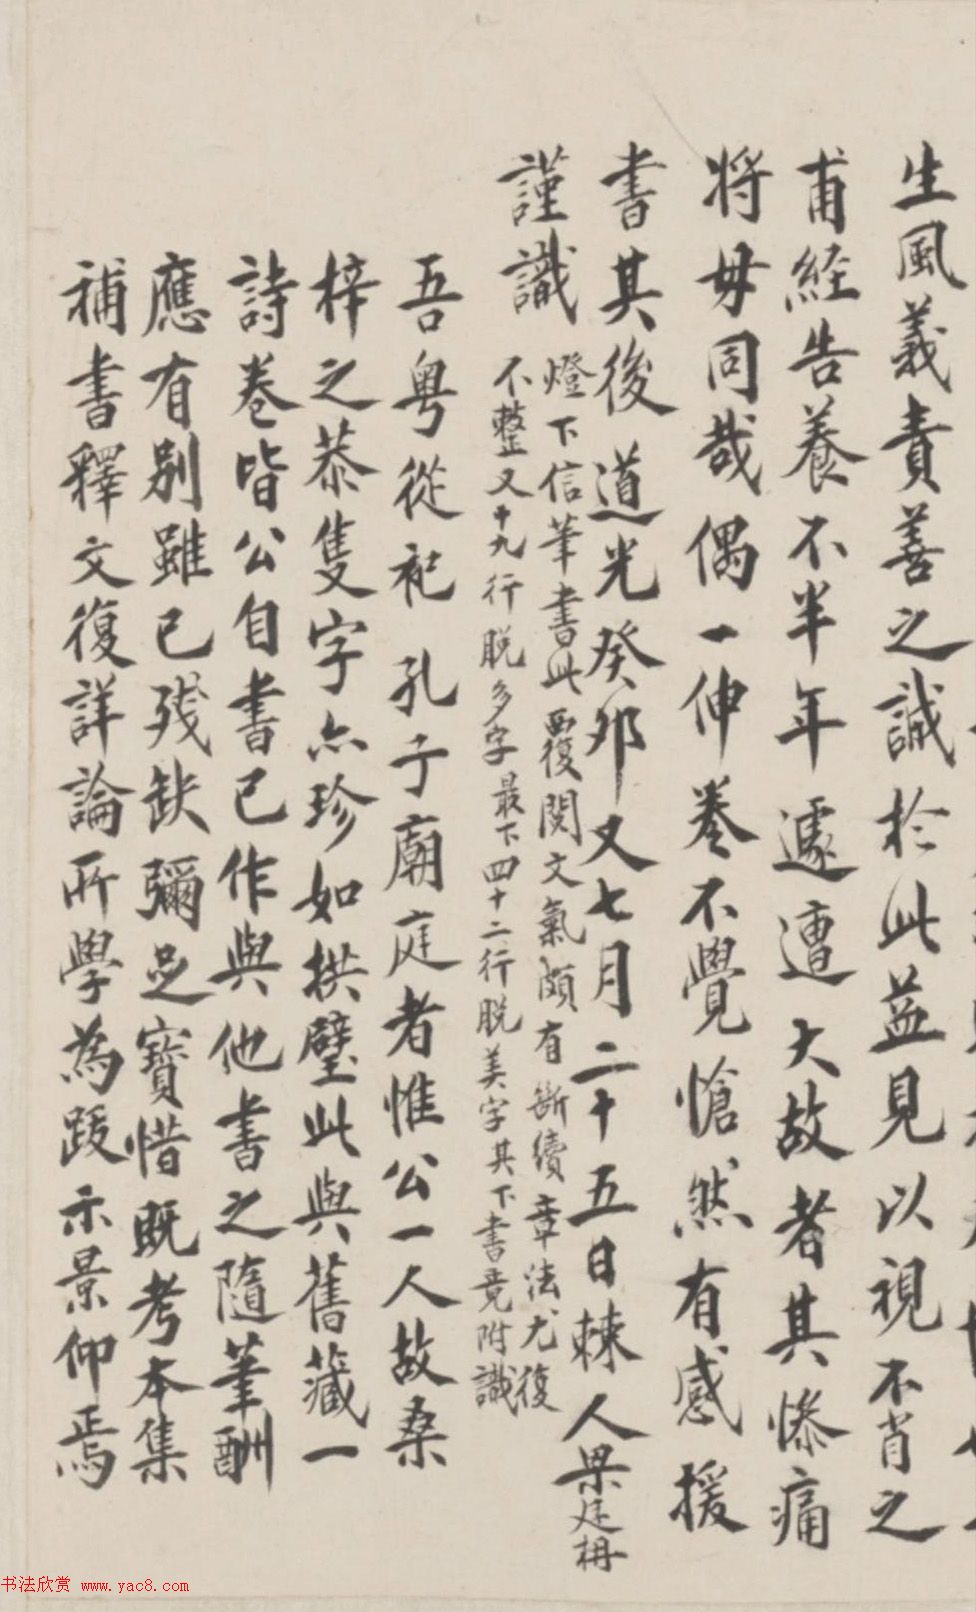 生風義責善之誠於此益見以視不肖之
甫經告養不半年遽遭大故者其慘痛
將毋同哉偶一伸卷不覺愴然有感援
書其後道光癸卯又七月二十五日棘人梁廷枏
謹識
燈下信筆書此覆閱文氣頗有斷續章法尤復
不整又十九行脫多字最下四十二行脫美字其下書竟附識
吾粵從祀孔子廟庭者惟公一人故桑
梓之恭隻字亦珍如拱璧此與舊藏一
詩卷皆公自書已作與他書之隨筆酬
應有別雖已殘缺彌足寶惜既考本集
補書釋文復詳論所學為跋示景仰焉
书法欣赏 www.yac8.com